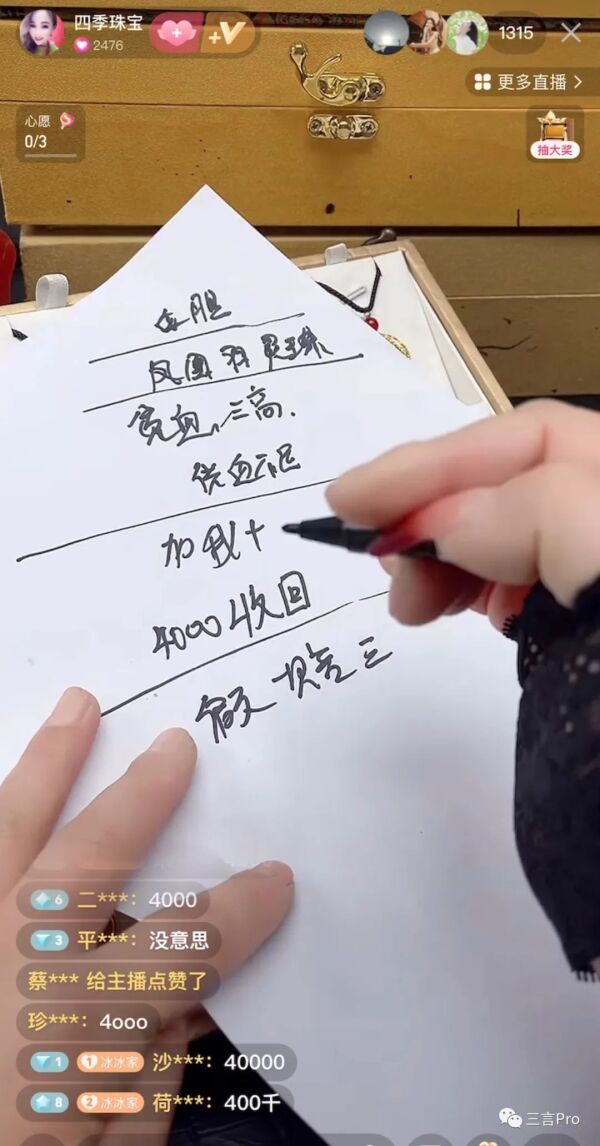 四季珠宝
2476
+V
1315
更多直播 >
心愿
0/3
抽大奖
蛇胆
凤凰羽灵珠
三高
供血不足
加我+
4000收回
假一赔三
6 二***：4000
3 平***：没意思
蔡*** 给主播点赞了
珍***：4ooo
1 1 冰冰家 沙***：40000
8 2 冰冰家 荷***：400千
三言Pro